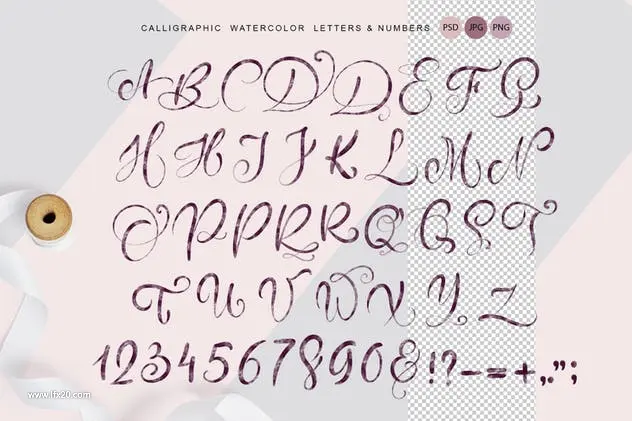 CALLIGRAPHIC WATERCOLOR LETTERS & NUMBERS PSD JPG PNG
A B C D D E F G
H H I J K L M N
O P P R R Q G S T
T U U V W X Y Z
1234567890&!?-=+,.";
www.lfx20.com